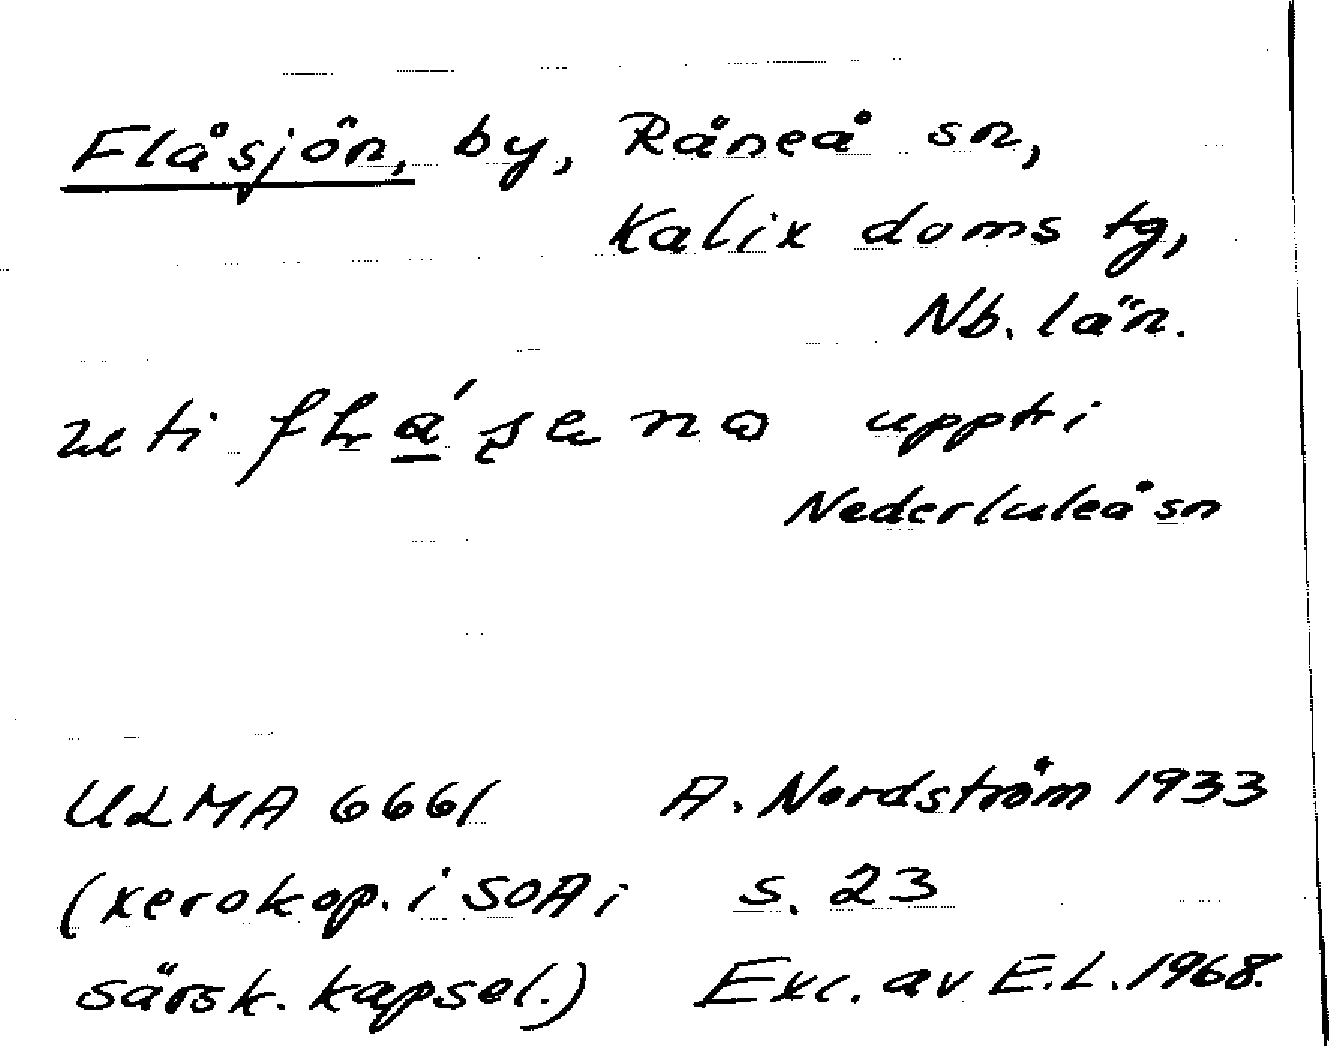 Flåsjön, by, Råneå sn,
Kalix doms tg,
Nb. län.
uti upptr i
Nederluleå sn
ULMA 6661 A. Nordström 1933
(xerokop. i SOA i s. 23
särsk. kapsel.) Exc. av E.L. 1968.